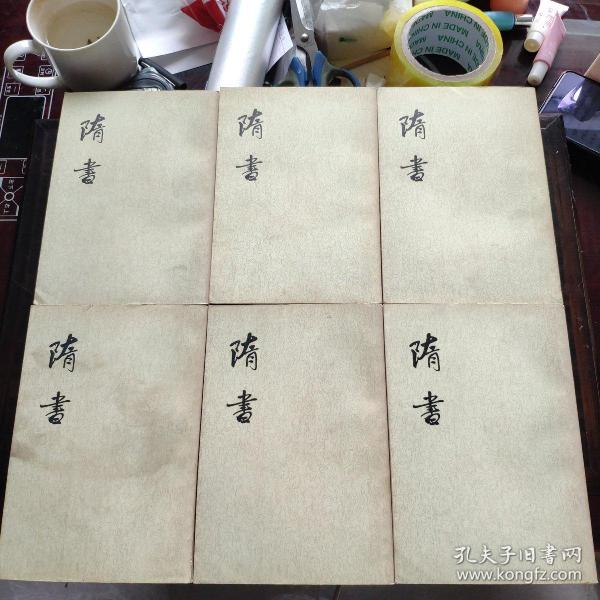 MADE IN CHINA
MADE IN CHINA
隋書
隋書
隋書
隋書
隋書
隋書
孔夫子旧書网
www.kongfz.com